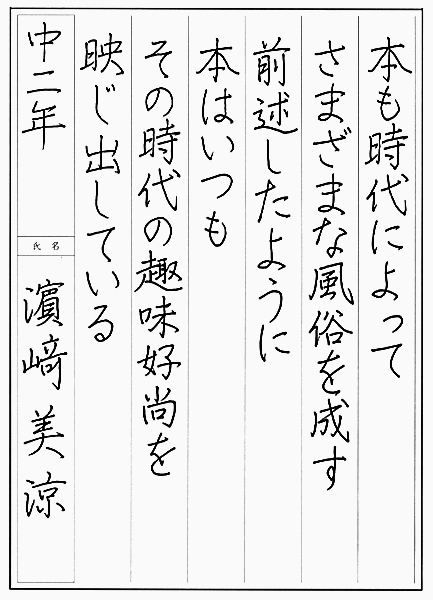 本も時代によって
さまざまな風俗を成す
前述したように
本はいつも
その時代の趣味好尚を
映じ出している
中二年
氏名
濵﨑美涼